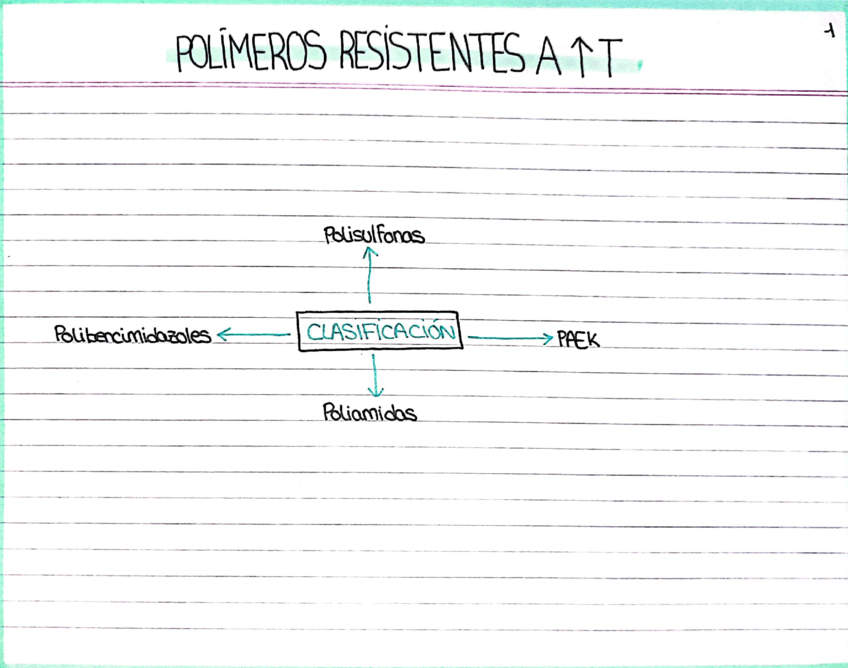 POLÍMEROS RESISTENTES A ↑ T
1
Polisulfonas
Polibencimidazoles ← CLASIFICACIÓN → PAEK
Poliamidas